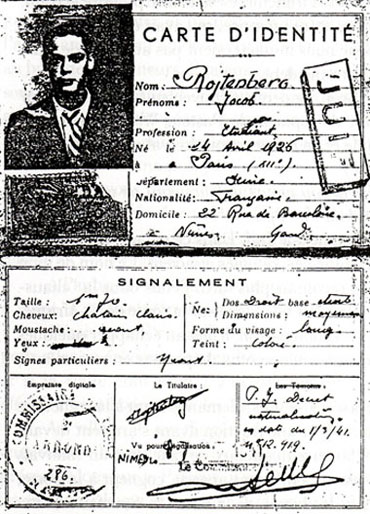 CARTE D'IDENTITÉ
Nom: Rojtenberg
Prénoms: Jacob
JUIF
Profession: Etudiant
Né le 14 Avril 1926
à Paris (XIIe)
Département: Seine
Nationalité: Française
Domicile: 22 Rue de
à Nîmes, Gard
SIGNALEMENT
Taille: 1m70
Cheveux: chatain clair
Moustache:
Yeux:
Signes particuliers: Néant
Nez: Dos: Droit base
Dimensions: moyennes
Forme du visage: long
Teint: Coloré
Empreinte digitale
Le Titulaire:
Les Témoins
COMMISSAIRE
ARROND
286
Vu pour légalisation
NIMES, le
Le Commissaire
P.J. Décret
naturalisation
en date du 1/3/41.
n° 512.419.